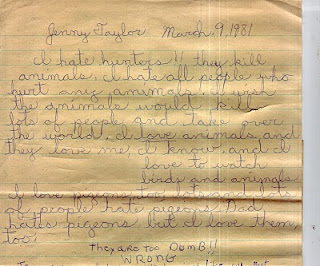 Jenny Taylor March, 9, 1981
I hate hunters!! they kill
animals. I hate all people who
hurt any animals. I wish
the animals would kill
lots of people and take over
the world. I love animals and
they love me, I know. and I
love to watch
birds and animals
I love pigeons too
of people hate pigeons. Dad
hates pigeons but I love them,
too.
they are too DUMB!!
WRONG